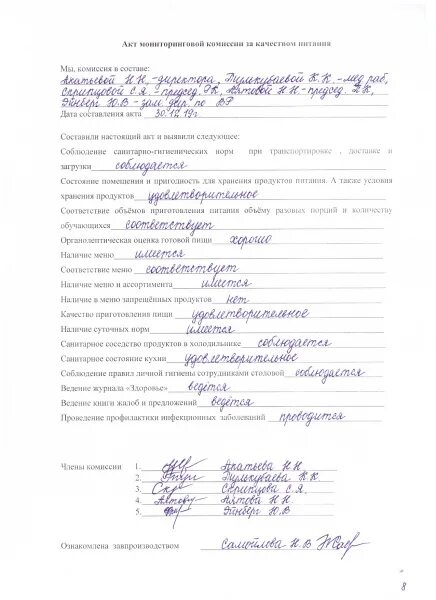 Акт мониторинговой комиссии за качеством питания
Мы, комиссия в составе:
Акатьевой Н.Н.-директора, Тулькубаевой К.К.-мед раб,
Скрипцовой С.Я.-председ. РК, Аятовой Н Н-председ. ДК,
Эйнберг Ю.В-зам. дир. по ВР
Дата составления акта 30.12.19г
Составили настоящий акт и выявили следующее:
Соблюдение санитарно-гигиенических норм при транспортировке , доставке и
загрузки соблюдается
Состояние помещения и пригодность для хранения продуктов питания. А также условия
хранения продуктов удовлетворительное
Соответствие объёмов приготовления питания объёму разовых порций и количеству
обучающихся соответствует
Органолептическая оценка готовой пищи хорошо
Наличие меню имеется
Соответствие меню соответствует
Наличие меню и ассортимента имеется
Наличие в меню запрещённых продуктов нет
Качество приготовления пищи удовлетворительное
Наличие суточных норм имеется
Санитарное соседство продуктов в холодильнике соблюдается
Санитарное состояние кухни удовлетворительное
Соблюдение правил личной гигиены сотрудниками столовой соблюдается
Ведение журнала «Здоровье» ведётся
Ведение книги жалоб и предложений ведётся
Проведение профилактики инфекционных заболеваний проводится
Члены комиссии 1. Акатьева Н Н
2. Тулькубаева К К
3. Скрипцова С.Я.
4. Аятова Н Н
5. Эйнберг Ю.В
Ознакомлена завпроизводством Самойлова Н.В
8